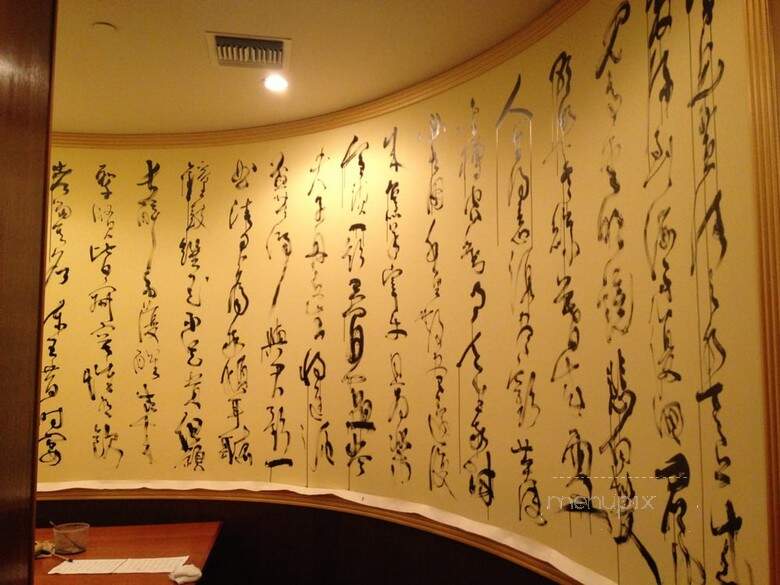 見黃河之水天上來
奔流到海不復回君
見高堂明鏡悲白髮
朝如青絲暮成雪
人生得意須盡歡莫使
金樽空對月天生我材
必有用千金散盡還復
來烹羊宰牛且為樂
會須一飲三百杯岑
夫子丹丘生將進酒
杯莫停與君歌一
曲請君為我傾耳聽
鐘鼓饌玉不足貴但願
長醉不復醒古來
聖賢皆寂寞惟有飲
者留其名陳王昔時宴
menupix